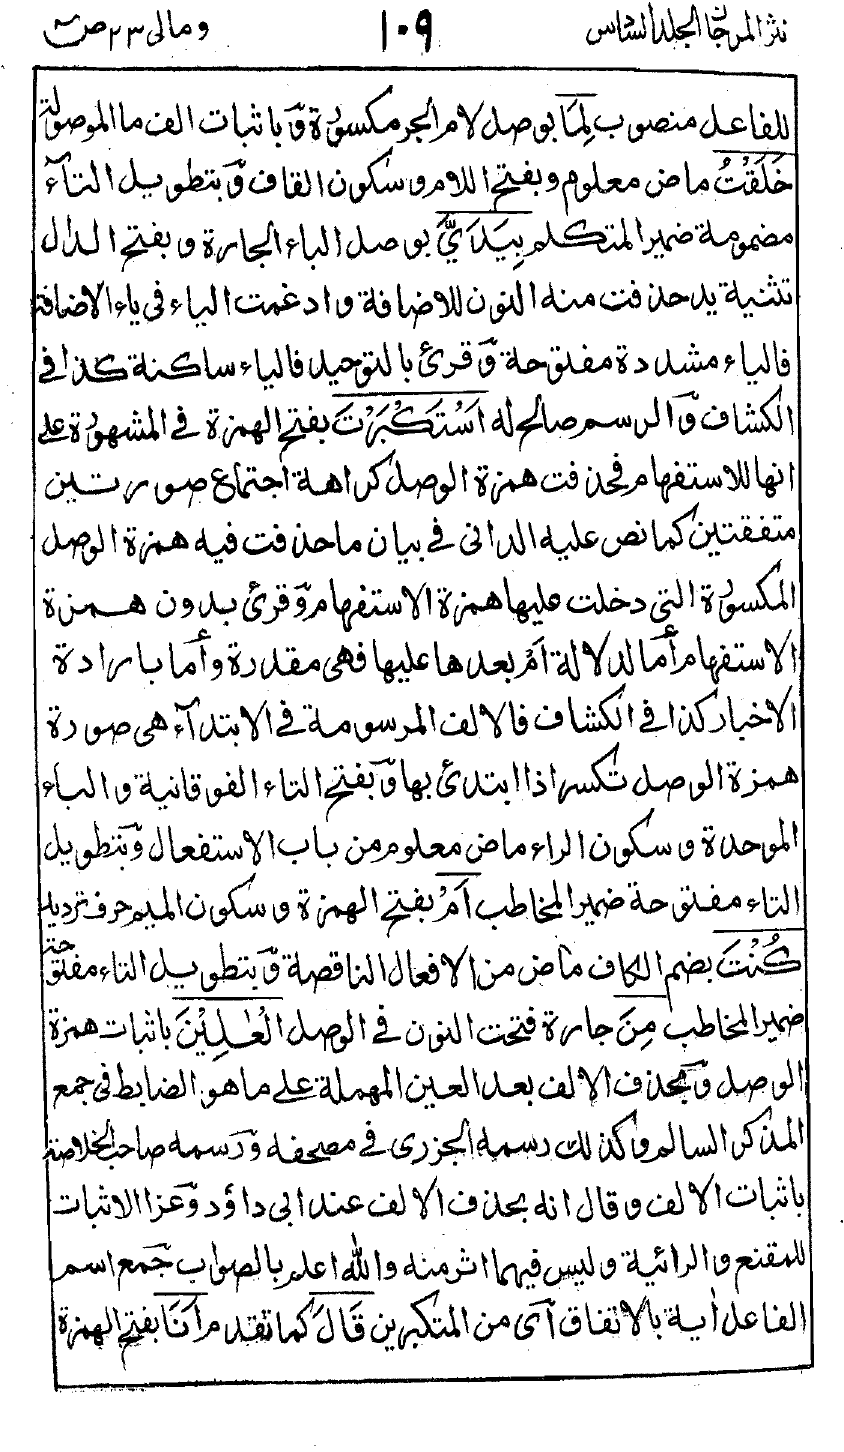 نثر المرجان الجلد السادس ١٠٩ ومالى ٢٣ ص
للفاعل منصوب لِمَا بوصل لام الجر مكسورة وباثبات الف ما الموصولة
خَلَقْتُ ماض معلوم وبفتح اللام وسكون القاف وبتطويل التآء
مضمومة ضمير المتكلم بِيَدَيَّ بوصل الباء الجارة وبفتح الدال
تثنية يد حذفت منه النون للاضافة وادغمت الياء فى ياء الاضافة
فالياء مشددة مفتوحة وقرئ بالتوحيد فالياء ساكنة كذا فى
الكشاف والرسم صالح له اَسْتَكْبَرْتَ بفتح الهمزة فى المشهورة على
انها للاستفهام فحذفت همزة الوصل كراهة اجتماع صورتين
متفقتين كما نص عليه الدانى فى بيان ما حذفت فيه همزة الوصل
المكسورة التى دخلت عليها همزة الاستفهام وقرئ بدون همزة
الاستفهام أما لدلالة اَمْ بعدها عليها فهى مقدرة وأما بارادة
الاخبار كذا فى الكشاف فالالف المرسومة فى الابتدآء هى صورة
همزة الوصل تكسر اذا ابتدئ بها وبفتح التاء الفوقانية والباء
الموحدة وسكون الراء ماض معلوم من باب الاستفعال وبتطويل
التاء مفتوحة ضمير المخاطب اَمْ بفتح الهمزة وسكون الميم حرف ترديد
كُنْتَ بضم الكاف ماض من الافعال الناقصة وبتطويل التاء مفتوحة
ضمير المخاطب مِنَ جارة فتحت النون فى الوصل الْعٰلِيْنَ باثبات همزة
الوصل وبحذف الالف بعد العين المهملة على ما هو الضابط فى جمع
المذكر السالم وكذلك رسمه الجزرى فى مصحفه ورسمه صاحب الخلاصة
باثبات الالف وقال انه بحذف الالف عند ابى داؤد وعزا الاثبات
للمقنع والرائية وليس فيهما اثر منه والله اعلم بالصواب جمع اسم
الفاعل اٰية بالاتفاق آى من المتكبرين قَالَ كما تقدم اَنَا بفتح الهمزة